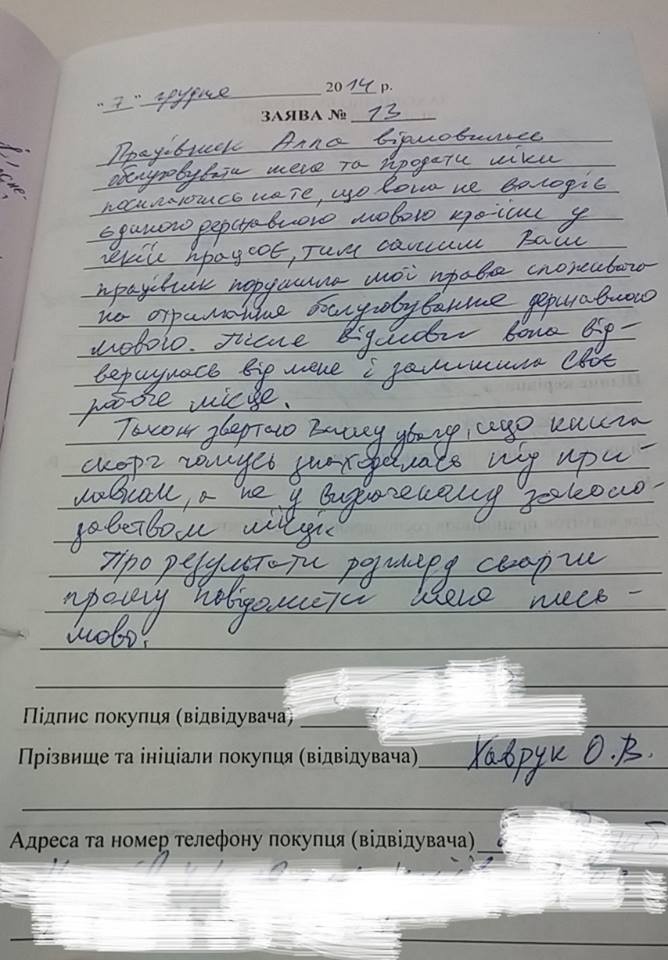 "7" грудня 2014 р.
ЗАЯВА № 13
Працівник Алла відмовилась
обслуговувати мене та продати ліки
посилаючись на те, що вона не володіє
єдиною державною мовою країни у
якій працює, тим самим Ваш
працівник порушила мої права споживача
на отримання обслуговування державною
мовою. Після відмови вона від-
вернулась від мене і залишила своє
робоче місце.
Також звертаю Вашу увагу, що книга
скарг чомусь знаходилась під при-
лавком, а не у визначеному законо-
давством місці.
Про результати розгляду скарги
прошу повідомити мене пись-
мово.
Підпис покупця (відвідувача)
Прізвище та ініціали покупця (відвідувача) Хаврук О.В.
Адреса та номер телефону покупця (відвідувача)